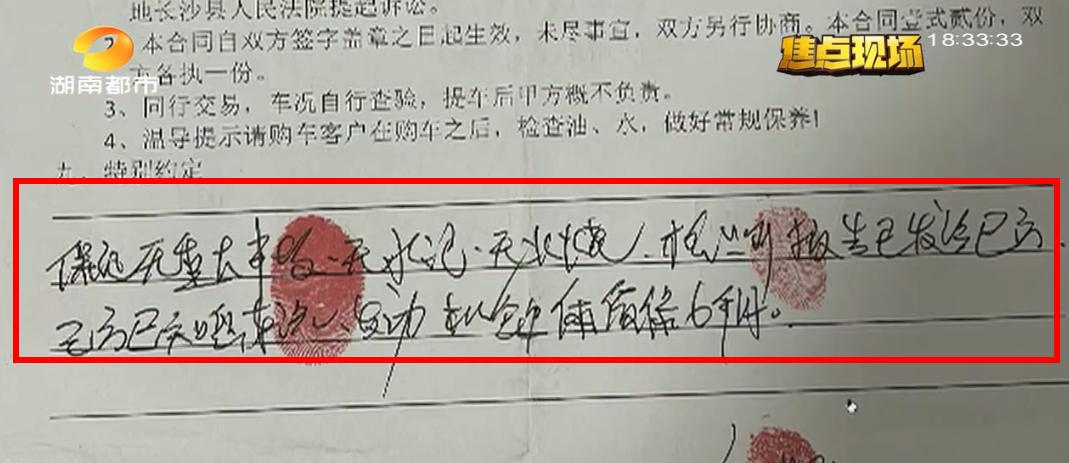 地长沙县人民法院提起诉讼。
2、本合同自双方签字盖章之日起生效，未尽事宜，双方另行协商。本合同壹式贰份，双
方各执一份。
3、同行交易，车况自行查验，提车后甲方概不负责。
4、温导提示请购车客户在购车之后，检查油、水，做好常规保养！
九、特别约定
保证无重大事故、无水泡、无火烧、检测报告已发给乙方、
乙方已知晓车况、发动机仓整体质保6个月。
湖南都市
焦点现场
18:33:33